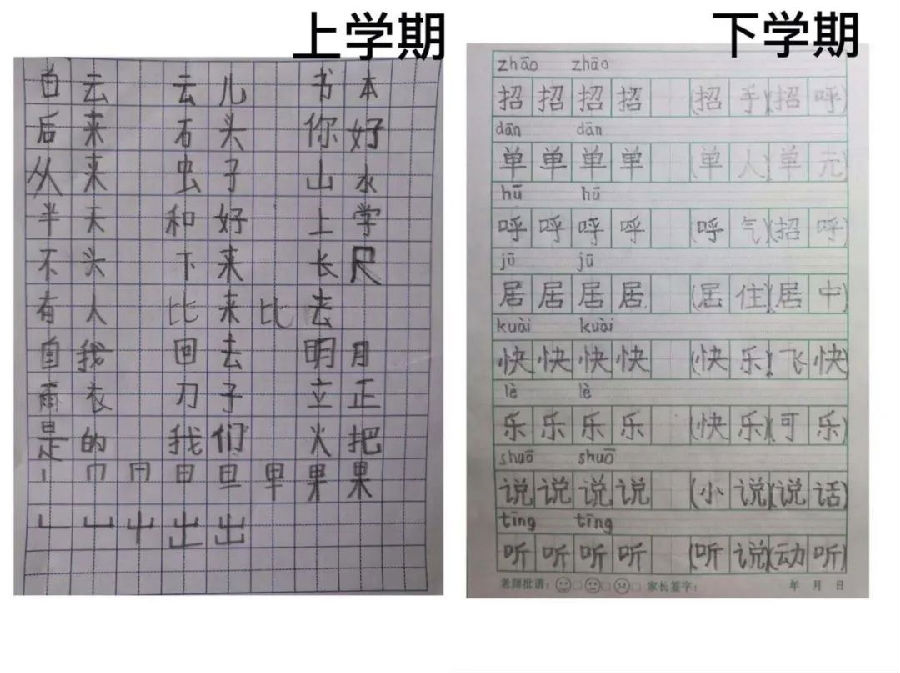 上学期
白云 云儿 书本
后来 石头 你好
从来 虫子 山水
半天 和好 上学
不头 下来 长尺
有人 比来比去
自我 回去 明月
雨衣 刀子 立正
是的 我们 火把
丨 冂 日 旦 早 果 果
凵 屮 出 出
下学期
zhāo zhāo
招 招 招 招 (招手)(招呼)
dān dān
单 单 单 单 (单人)(单元)
hū hū
呼 呼 呼 呼 (呼气)(招呼)
jū jū
居 居 居 居 (居住)(居中)
kuài kuài
快 快 快 快 (快乐)(飞快)
lè lè
乐 乐 乐 乐 (快乐)(可乐)
shuō shuō
说 说 说 说 (小说)(说话)
tīng tīng
听 听 听 听 (听说)(动听)
老师批语: 家长签字: 年 月 日